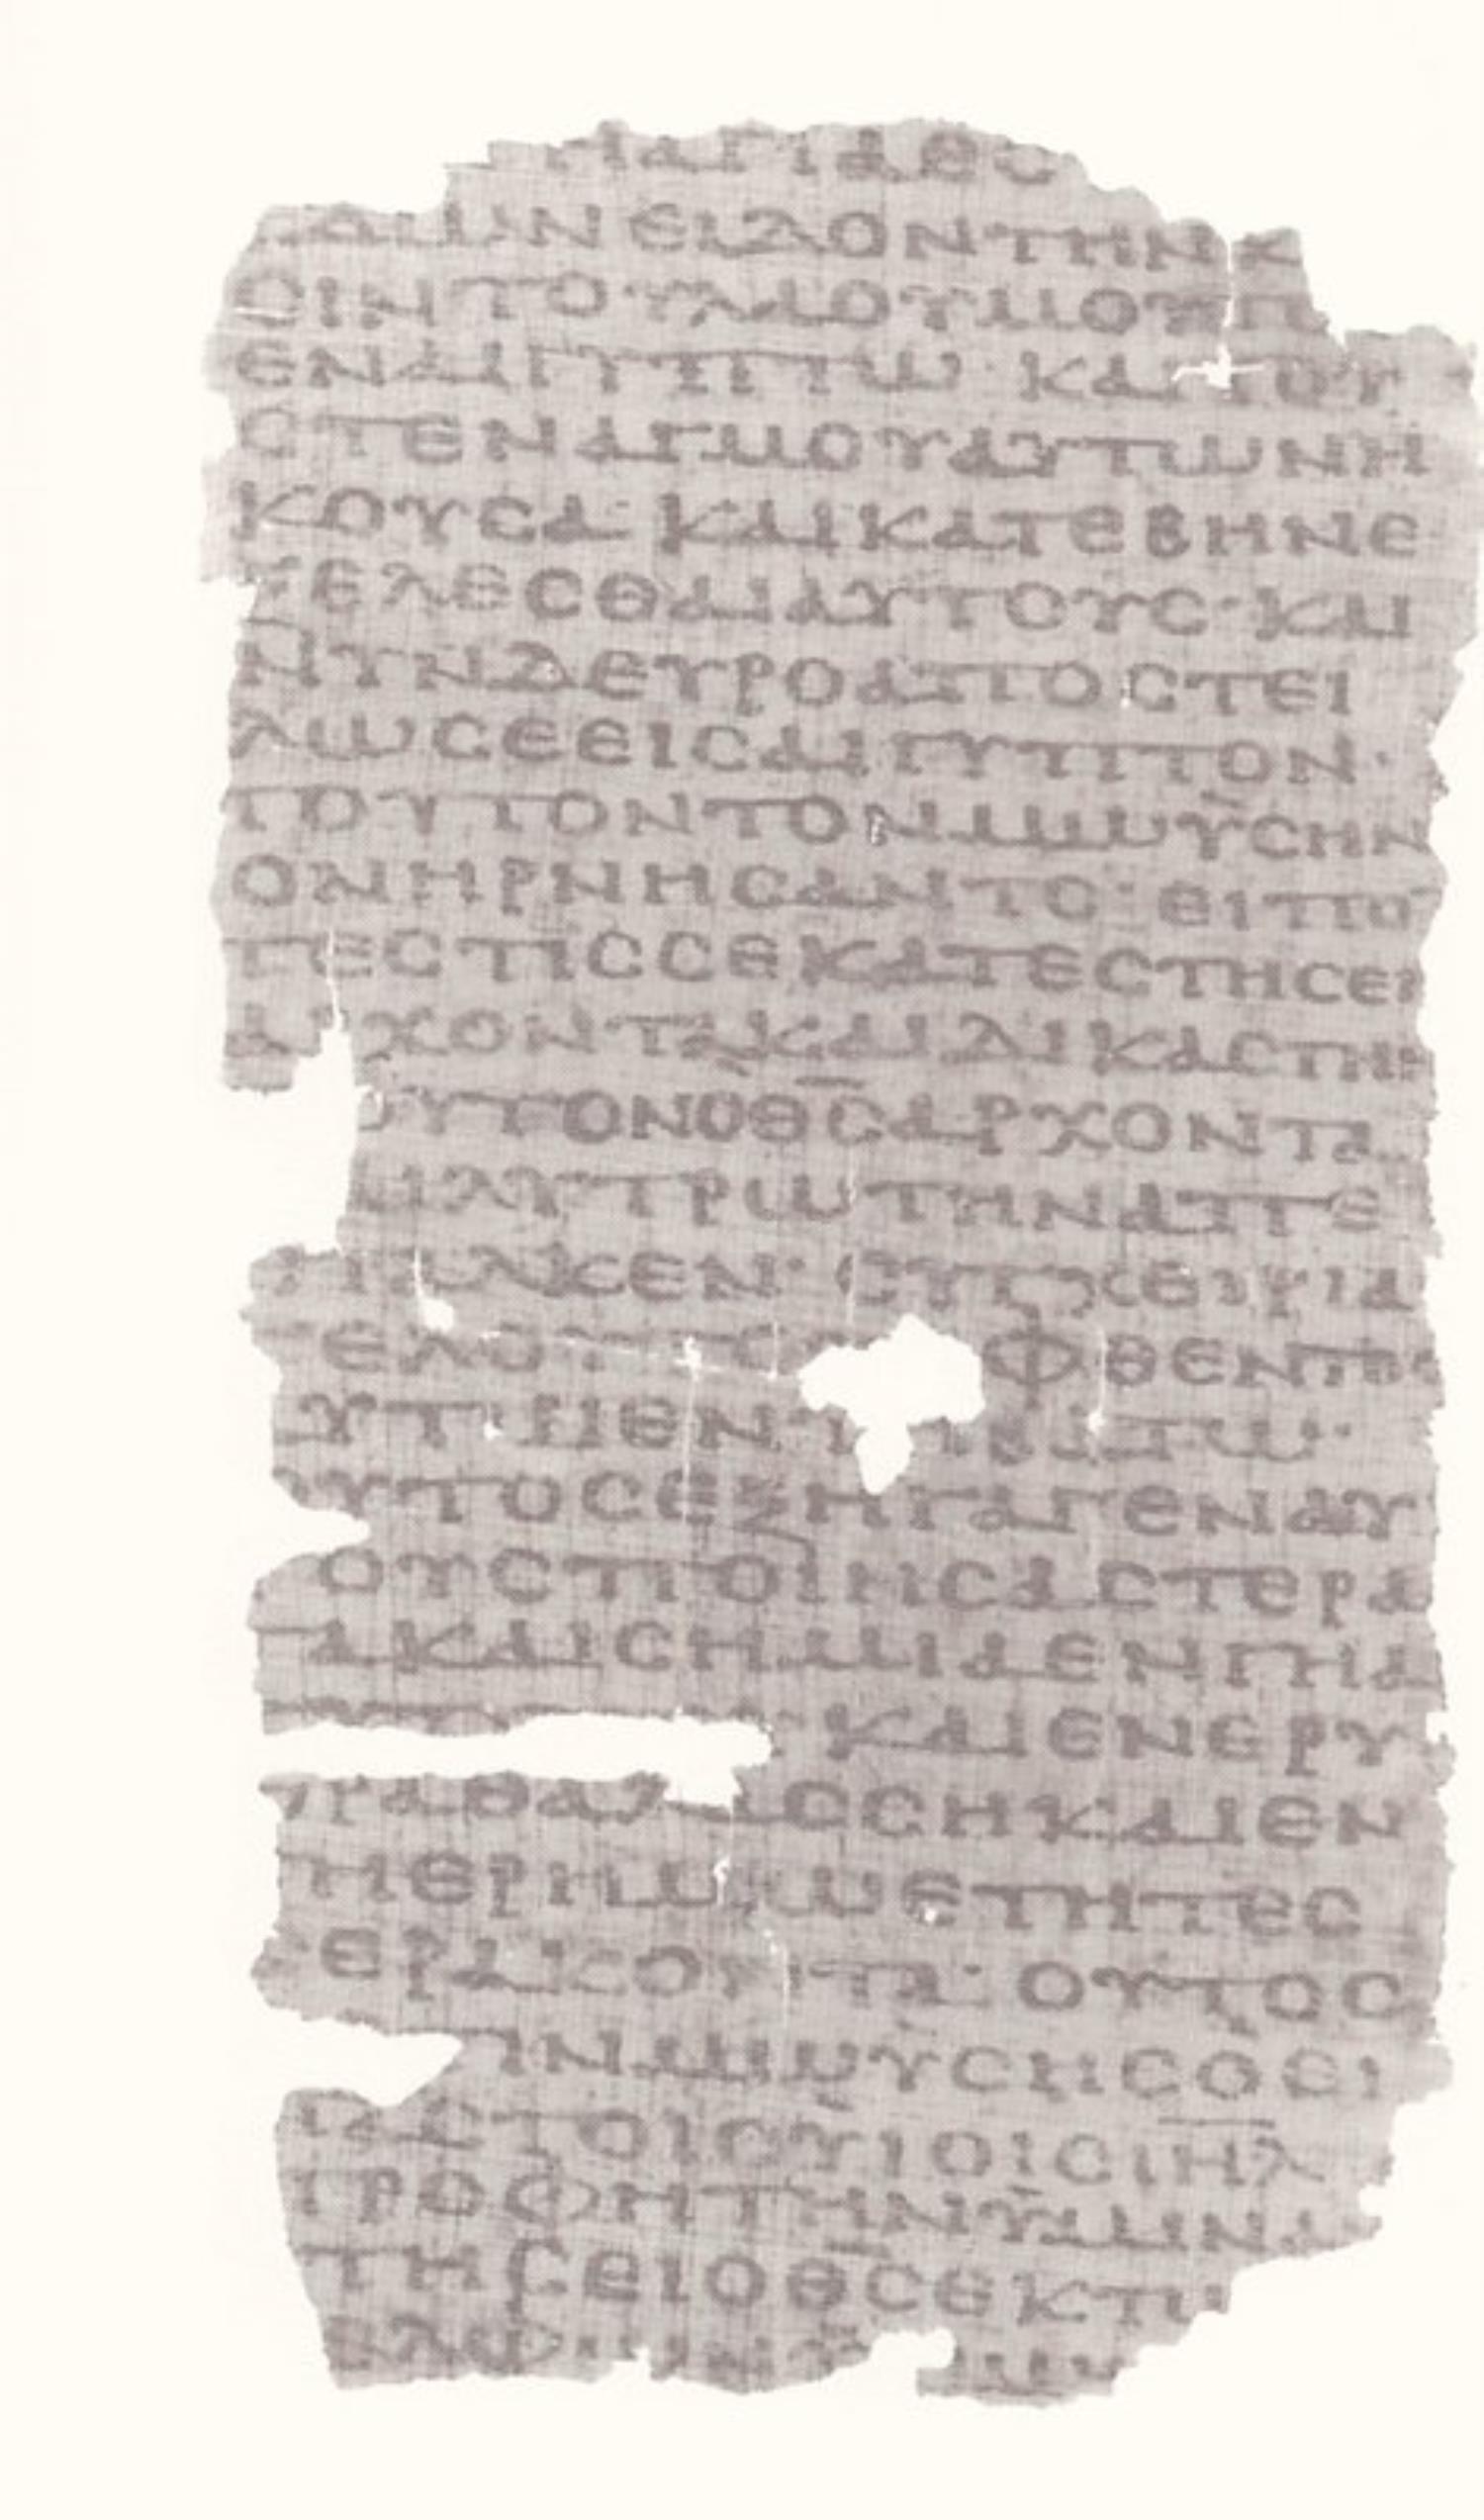 ΗΑΓΙΑΕϹ
ΔΩΝΕΙΔΟΝΤΗΝΚ
ϹΙΝΤΟΥΛΑΟΥΜΟΥΤ
ΕΝΑΙΓΥΠΤΩ· ΚΑΙΤΟΥ
ϹΤΕΝΑΓΜΟΥΑΥΤΩΝΗ
ΚΟΥϹΑ· ΚΑΙΚΑΤΕΒΗΝΕ
ΞΕΛΕϹΘΑΙΑΥΤΟΥϹ· ΚΑΙ
ΝΥΝΔΕΥΡΟΑΠΟϹΤΕΙ
ΛΩϹΕΕΙϹΑΙΓΥΠΤΟΝ·
ΤΟΥΤΟΝΤΟΝΜΩΥϹΗΝ
ΟΝΗΡΝΗϹΑΝΤΟ· ΕΙΠΟ
ΤΕϹΤΙϹϹΕΚΑΤΕϹΤΗϹΕΝ
Α ΧΟΝΤΑΚΑΙΔΙΚΑϹΤΗΝ
ΟΥΤΟΝΟΘ̅Ϲ̅ΑΡΧΟΝΤΑ
ΑΙΛΥΤΡΩΤΗΝΑΠΕ
ϹΤΑΛΚΕΝ· ϹΥΝΧΕΙΡΙΑ
ΓΕΛΟΥ ΟΦΘΕΝΤΟϹ
ΥΤΩ ΕΝΤΗΒΑΤΩ·
ΟΥΤΟϹΕΞΗΓΑΓΕΝΑΥ
ΟΥϹΠΟΙΗϹΑϹΤΕΡΑ
ΤΑΚΑΙϹΗΜΙΑΕΝΓΗΑΙ
ΚΑΙΕΝΕΡΥ
ΘΡΑΘΑΛΑϹϹΗΚΑΙΕΝ
ΤΗΕΡΗΜΩΕΤΗΤΕϹ
ΕΡΑΚΟΝΤΑ· ΟΥΤΟϹ
ΙΝΜΩΥϹΗϹΟΕΙ
ΠΑϹΤΟΙϹΥΙΟΙϹΙ̅Η̅Λ̅
ΠΡΟΦΗΤΗΝΥΜΙΝΑ
ϹΤΗϹΕΙΟΘ̅Ϲ̅ΕΚΤΩ
ΔΕΛΦΩΝ